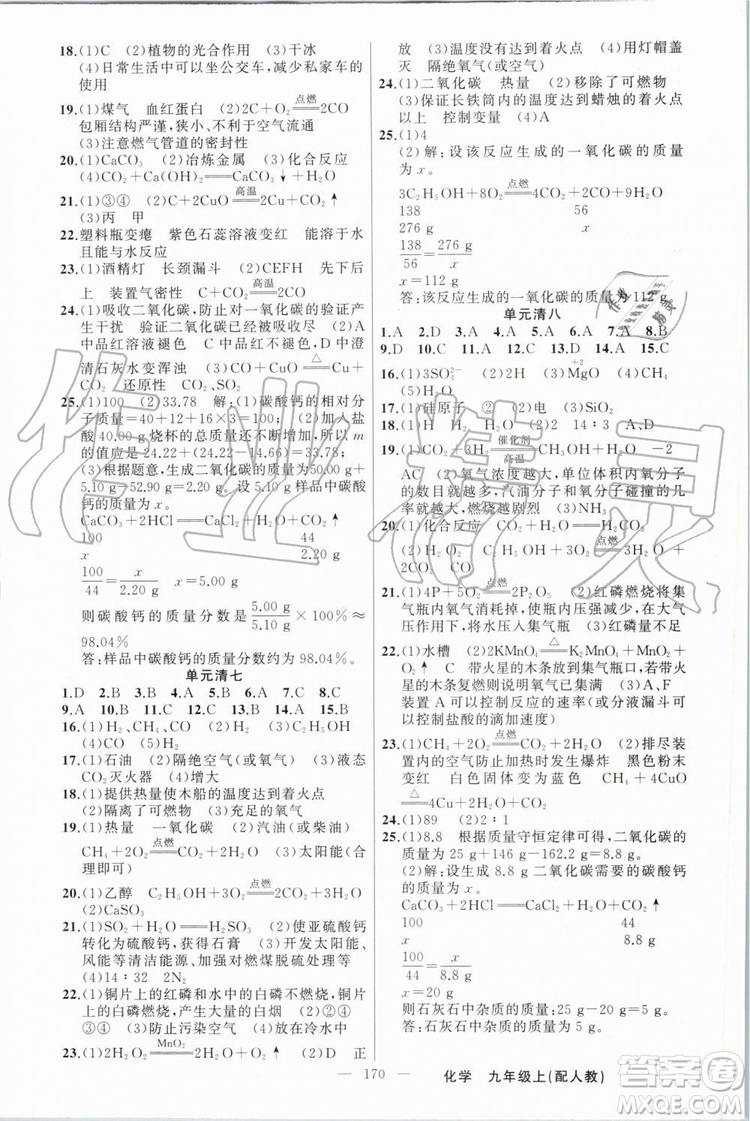 18.(1)C (2)植物的光合作用 (3)干冰
(4)日常生活中可以坐公交车,减少私家车的
使用
19.(1)煤气 血红蛋白 (2)2C+O₂ 点燃 2CO
包厢结构严谨,狭小、不利于空气流通
(3)注意燃气管道的密封性
20.(1)CaCO₃ (2)冶炼金属 (3)化合反应
(4)CO₂+Ca(OH)₂══CaCO₃↓+H₂O
21.(1)③④ (2)C+2CuO 高温 2Cu+CO₂↑
(3)丙 甲
22.塑料瓶变瘪 紫色石蕊溶液变红 能溶于水
且能与水反应
23.(1)酒精灯 长颈漏斗 (2)CEFH 先下后
上 装置气密性 C+CO₂ 高温 2CO
24.(1)吸收二氧化碳,防止对一氧化碳的验证产
生干扰 验证二氧化碳已经被吸收尽 (2)A
中品红溶液褪色 C中品红溶液不褪色,D中澄
清石灰水变浑浊 (3)C+2H₂SO₄ △
CO₂ 还原性 (4)CO₂、SO₂
25.(1)100 (2)33.78 解:(1)碳酸钙的相对分
子质量=40+12+16×3=100 (2)加入盐
酸40.00 g烧杯的总质量还不断增加,所以m
的值应是24.78-(24.12-14.66)=33.78
(3)根据题意,生成二氧化碳的质量为50.00 g+
5.10 g-52.90 g=2.20 g。设样品中碳酸
钙的质量为x。
CaCO₃+2HCl══CaCl₂+H₂O+CO₂↑
100 44
x 2.20 g
100/44=x/2.20 g x=5.00 g
则碳酸钙的质量分数是5.00 g/5.10 g×100%≈
98.04%
答:样品中碳酸钙的质量分数约为98.04%。
单元清七
1.D 2.B 3.B 4.C 5.D 6.B 7.B 8.B
9.A 10.B 11.C 12.C 13.B 14.A 15.B
16.(1)H₂、CH₄、CO (2)O₂ (3)C₂H₅OH
(4)CO₂ (5)H₂
17.(1)石油 (2)隔绝空气(或氧气) (3)液态
CO₂灭火器 (4)增大
18.(1)提供热量使木船的温度达到着火点
(2)隔离了可燃物 (3)充足的氧气
19.(1)热量 一氧化碳 (2)汽油(或柴油)
CH₄+2O₂ 点燃 CO₂+2H₂O (3)太阳能(合
理即可)
20.(1)乙醇 C₂H₅OH+3O₂ 点燃 2CO₂+3H₂O
(2)CaSO₃
21.(1)SO₂+H₂O══H₂SO₃ (2)使亚硫酸钙
转化为硫酸钙,获得石膏 (3)开发太阳能、
风能等清洁能源或对燃煤脱硫处理等
(4)14∶32 2N₂
22.(1)铜片上的红磷和水中的白磷不燃烧,铜片
上的白磷燃烧,产生大量的白烟 (2)②④
③④ (3)防止污染空气 (4)放在冷水中
23.(1)2H₂O₂ MnO₂ 2H₂O+O₂↑ (2)D 正
放 (3)温度没有达到着火点 (4)用灯帽盖
灭 隔绝氧气(或空气)
24.(1)二氧化碳 热量 (2)移除了可燃物
(3)保证长铁筒内的温度达到蜡烛的着火点
以上 控制变量 (4)A
25.(1)4
(2)解:设该反应生成的一氧化碳的质量
为x。
3C₂H₅OH+8O₂ 点燃 4CO₂+2CO+9H₂O
138 56
276 g x
138/56=276 g/x
x=112 g
答:该反应生成的一氧化碳质量为112 g。
单元清八
1.A 2.D 3.D 4.B 5.D 6.A 7.A 8.B
9.D 10.A 11.D 12.D 13.D 14.
16.(1)3SO₄²⁻ (2)2H (3)MgO(+2) (4)CH₄
(5)H₂O
17.(1)硅原子 ② (2)电 (3)SiO₂
18.(1)H₂ H₂ H₂O (2)14∶3 A、D
19.(1)CO₂+3H₂ 催化剂 高温
AC (2)氧气浓度越大,单位体积内氧分子
的数目就越多,汽油分子和氧分子碰撞的几
率就越大,燃烧越剧烈 (3)NH₃
20.(1)化合反应 CO₂+H₂O══H₂CO₃
(2)H₂O₂ O₂ CO₂ CO
21.(1)4P+5O₂ 点燃 2P₂O₅ (2)红磷燃烧将集
气瓶内氧气消耗掉,使瓶内压强减少,在大气
压作用下,将水压入集气瓶 (3)红磷量不足
22.(1)水槽 (2)2KMnO₄ △ K₂MnO₄+MnO₂
+O₂↑ C 带火星的木条放到集气瓶口,若带
火星的木条复燃则说明氧气已集满 (3)A、F
装置A可以控制反应的速率(或分液漏斗可
以控制盐酸的滴加速度)
23.(1)CH₄+2O₂ 点燃 CO₂+2H₂O (2)排尽装
置内的空气防止加热时发生爆炸 黑色粉末
变红 白色固体变为蓝色 CH₄+4CuO
△ 4Cu+2H₂O+CO₂
24.(1)89 (2)2∶1
25.(1)8.8 根据质量守恒定律可得,二氧化碳的
质量为25 g+146 g-162.2 g=8.8 g。
(2)解:设石灰石中参加反应的碳酸钙的
质量为x。
CaCO₃+2HCl══CaCl₂+H₂O+CO₂↑
100 44
x 8.8 g
100/44=x/8.8 g
x=20 g
石灰石中杂质的质量为25 g-20 g=5 g。
答:石灰石中杂质的质量为5 g。
— 170 — 化学 九年级上(配人教)
作业精灵
答案圈
MXQE.COM